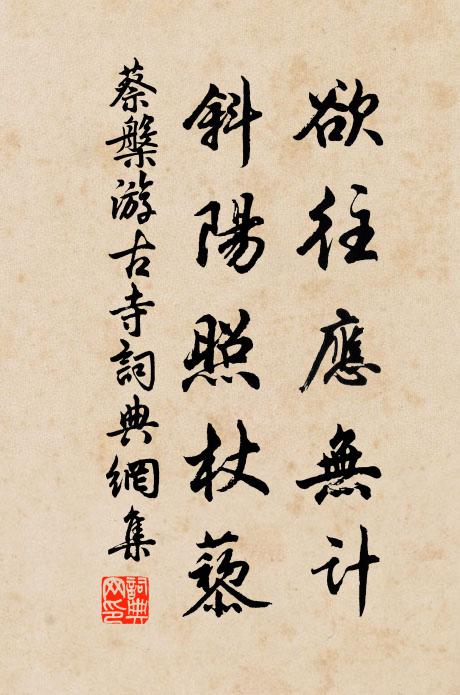 欲往應無計
斜陽照杖藜
蔡槃游古寺詞典網集
詞典網印